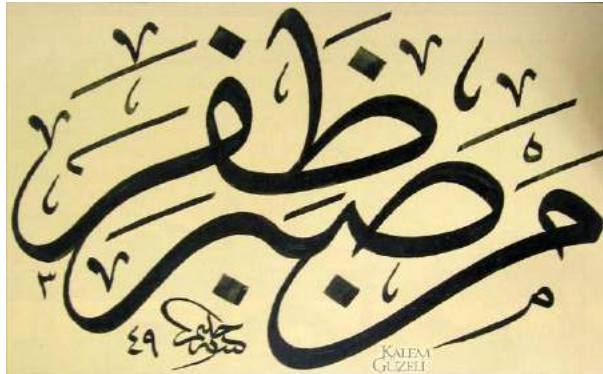 مَنْ صَبَرَ ظَفَرَ
حليم
٤٩
KALEM
GÜZELİ